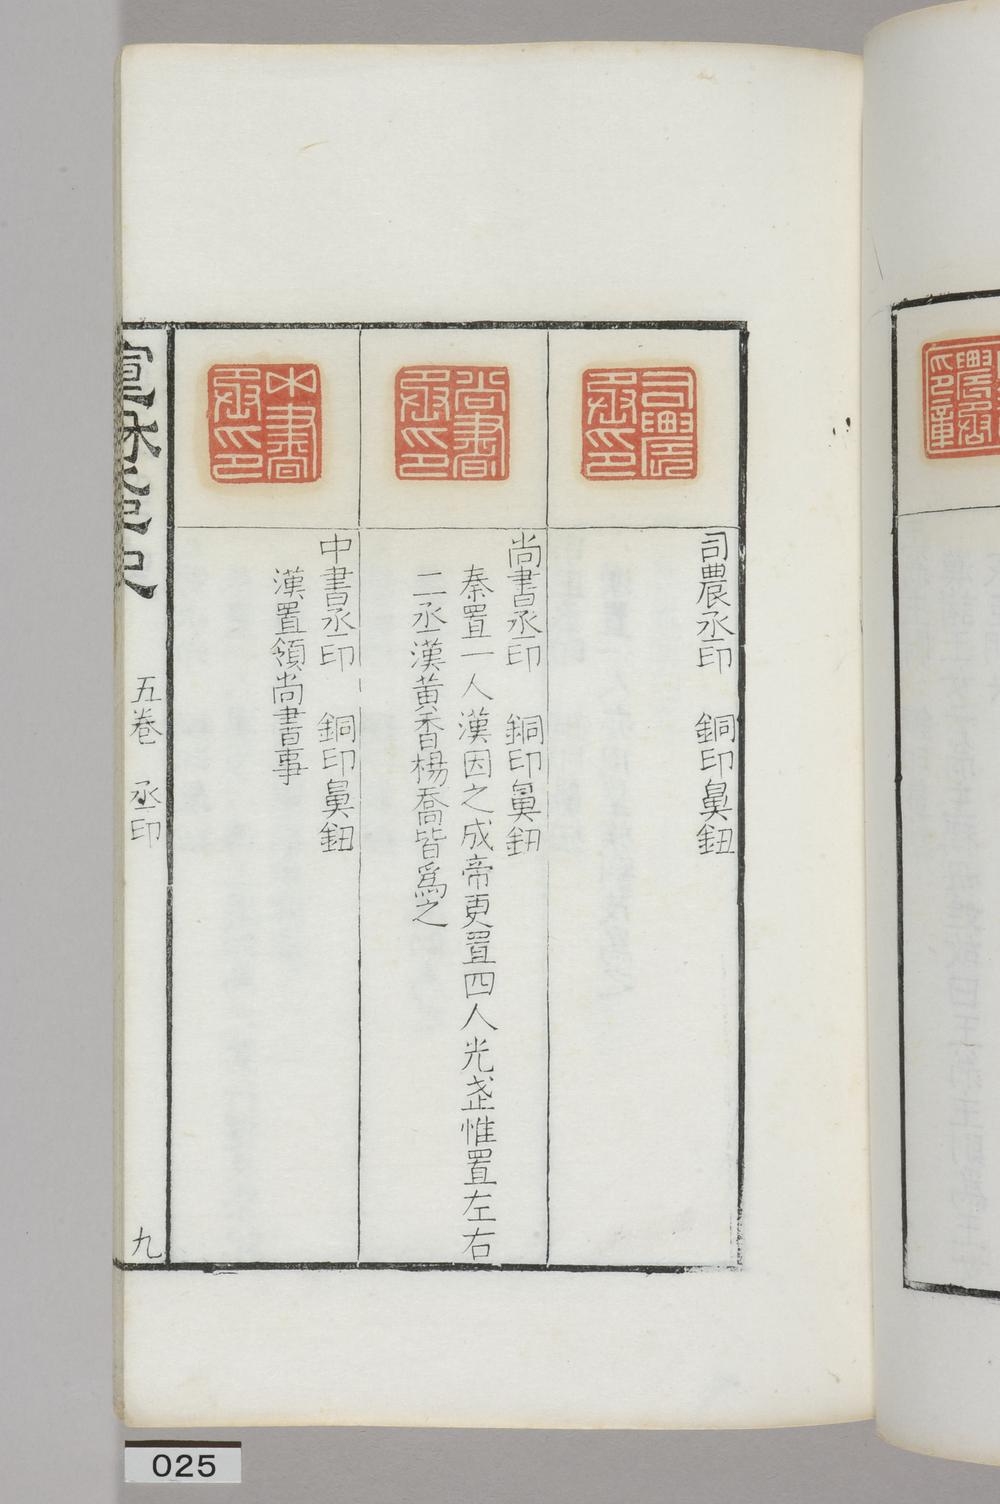 司農丞印
司農丞印　銅印鼻鈕
尚書丞印
尚書丞印　銅印鼻鈕
秦置一人漢因之成帝更置四人光武惟置左右
二丞漢黃香楊喬皆爲之
中書丞印
中書丞印　銅印鼻鈕
漢置領尚書事
宣和集古印史　五卷　丞印　九
025